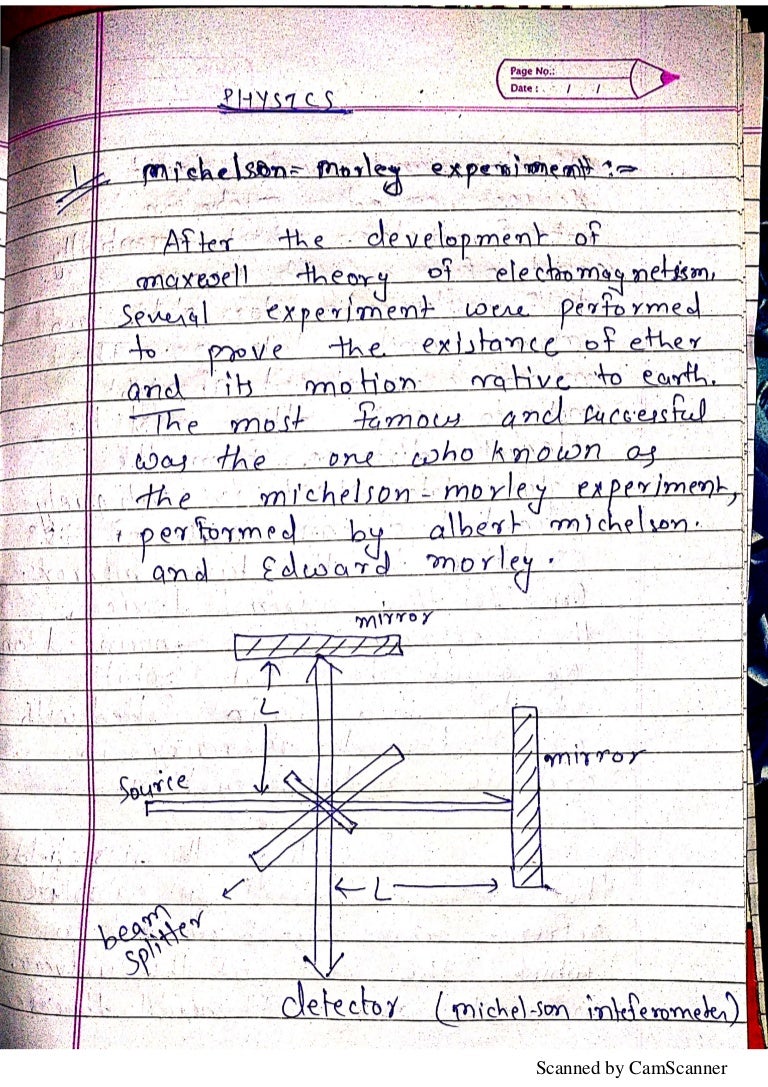 PHYSICS
Page No.:
Date : / /
1 michelson- morley experiment :-
After the development of
maxewell theory of electromagnetism,
Several experiment were performed
to prove the existance of ether
and its motion rative to earth.
The most famous and successful
was the one who known as
the michelson-morley experiment,
performed by albert michelson.
and Edward morley.
mirror
L
mirror
Source
L
beam
splitter
detector (michel-son inteferometer)
Scanned by CamScanner